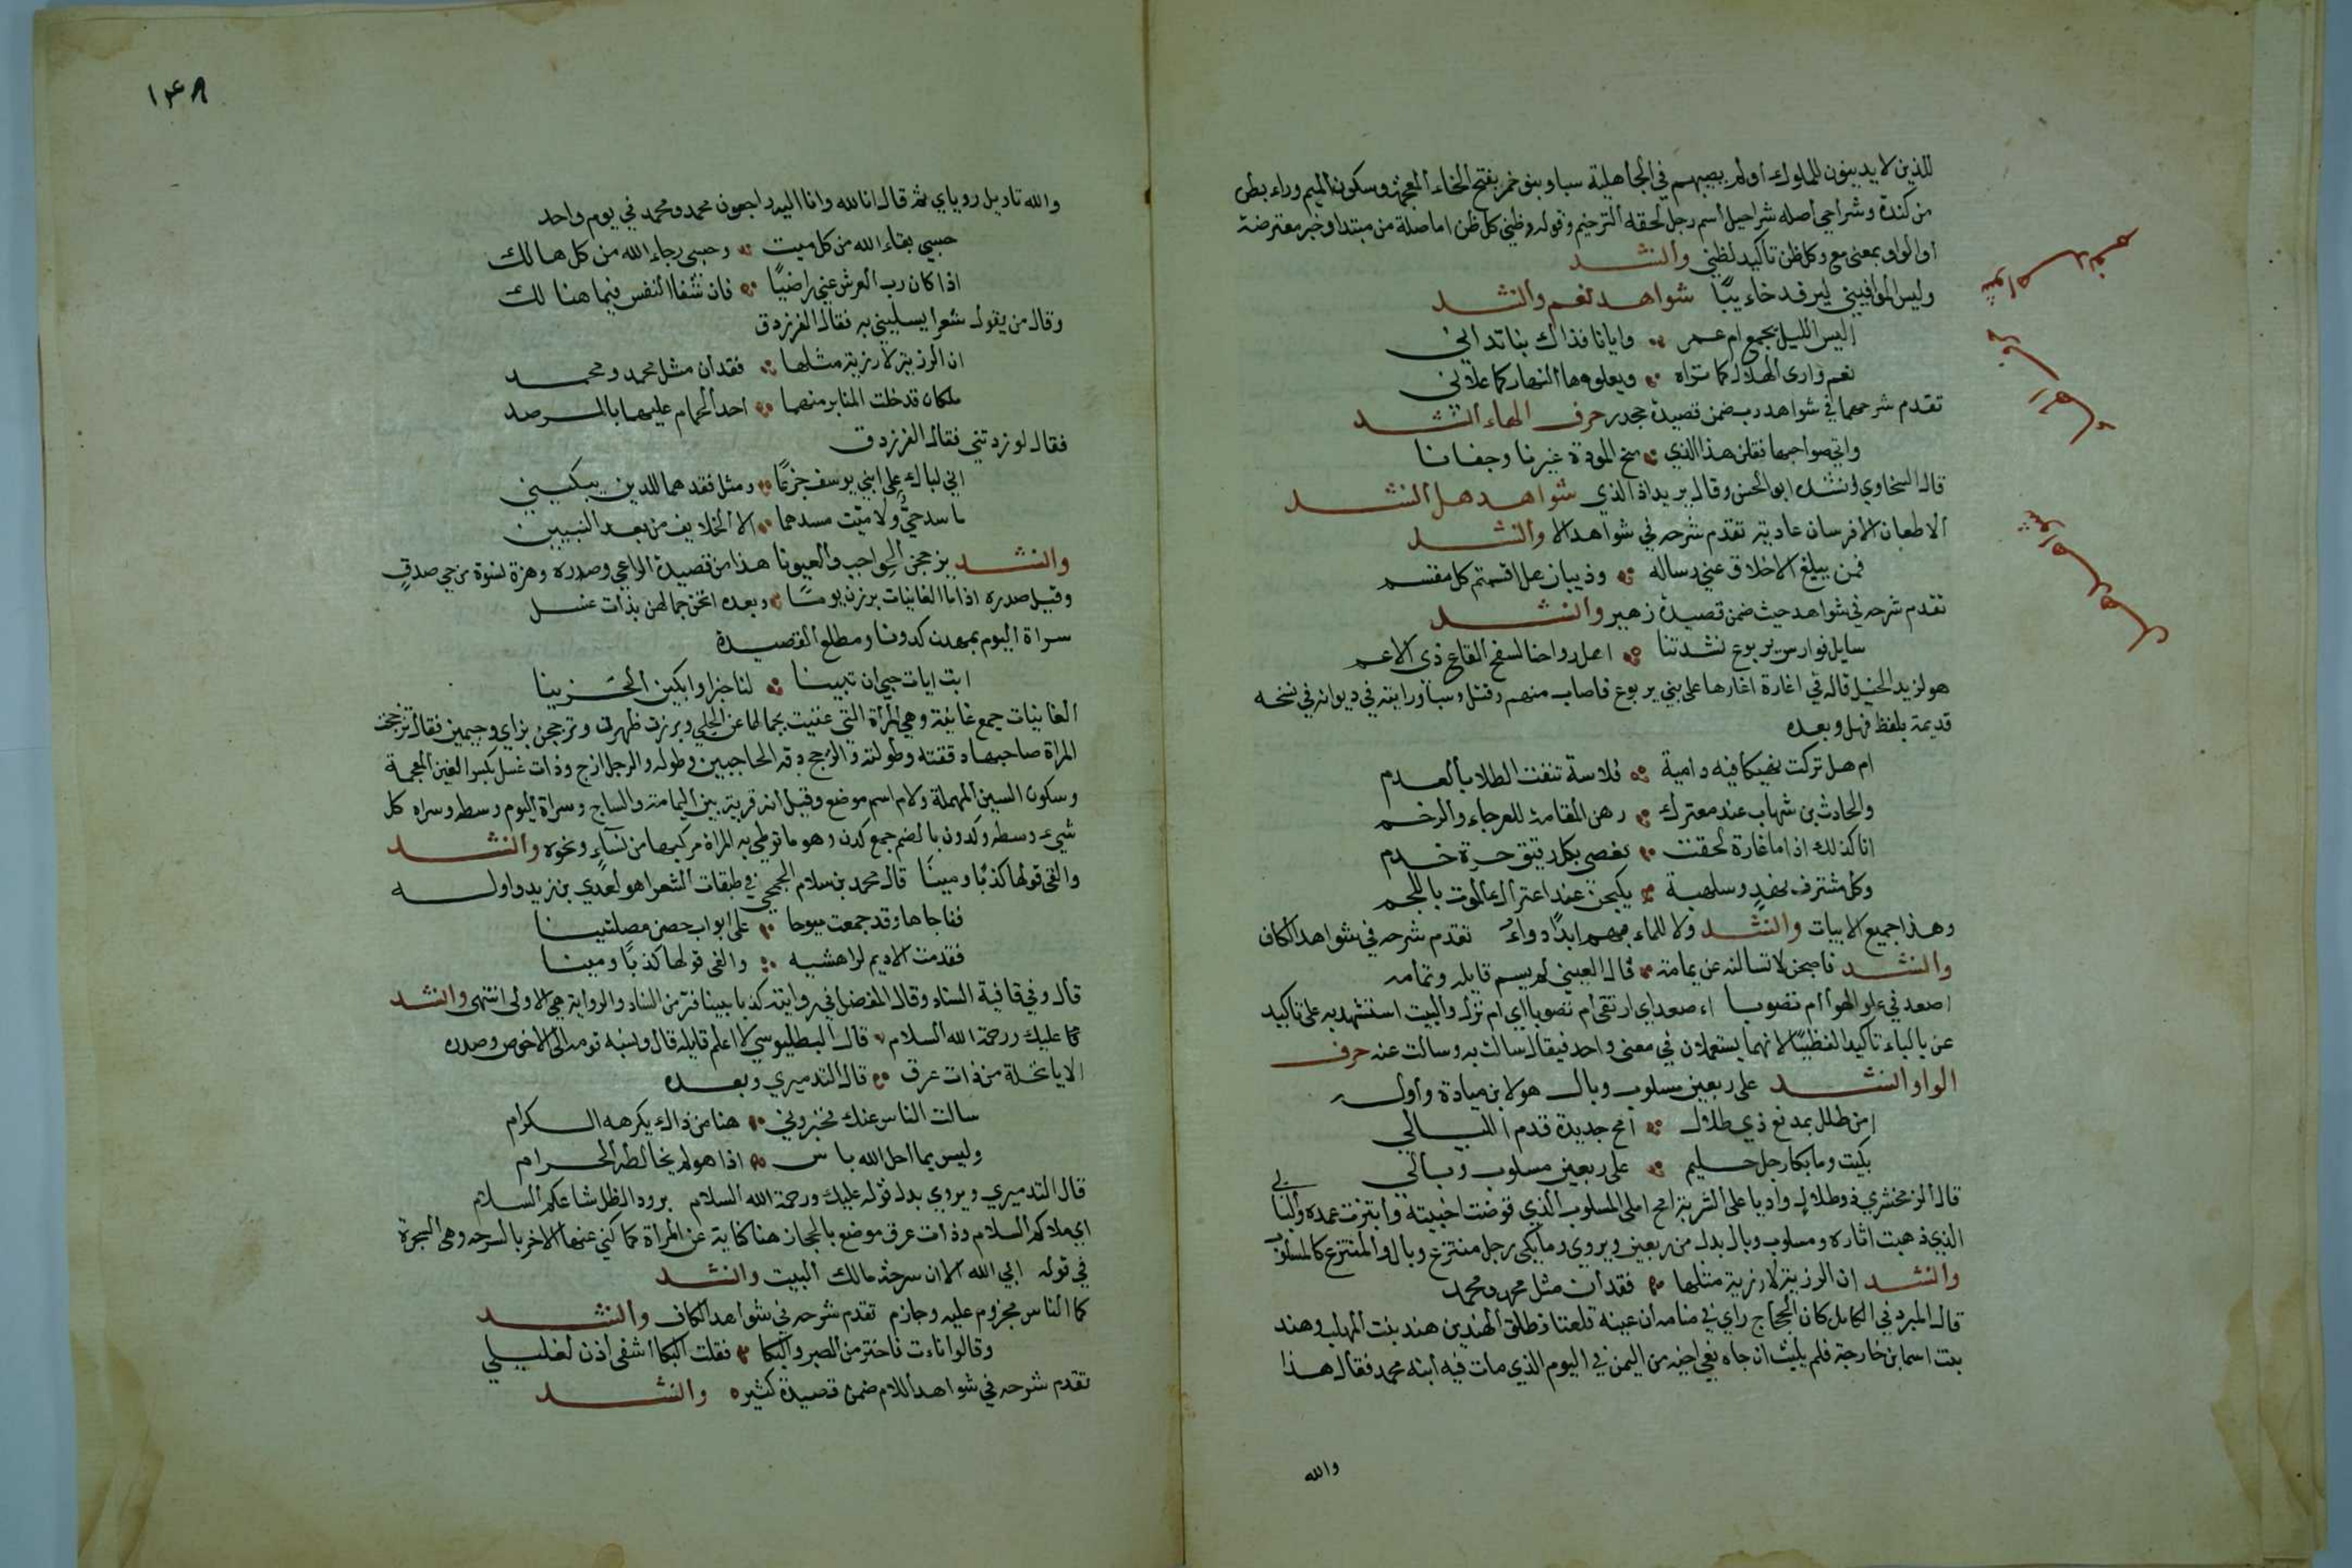 للذين لا يدينون للملوك أو لم يصبهم في الجاهلية سبا وبنو خمر بفتح الخاء المعجمة وسكون الميم وراء بطن
من كندة وشراحي أصله شراحيل اسم رجل لحقه الترخيم وقوله وظني كل ظن اما صلة من مبتدا وخبر معترضة
او الواو بمعنى مع وكل ظن تاكيد لظني وأنشد
وليس الموافيني ليرفد خاءيبًا شواهد نعم وأنشد
اليس الليل يجمع ام عمر وايانا فذاك بنا تداني
نعم وارى الهلال كما تراه ويعلوها النهار كما علاني
تقدم شرحهما في شواهد رب ضمن قصيدة جحدر حرف الهاء أنشد
واتى صواحبها فقلن هذا الذي منح المودة غيرنا وجفانا
قال السخاوي انشده ابو الحسن وقال يريد اذا الذي شواهد هل أنشد
الا طعان الا فرسان عادية تقدم شرحه في شواهد الا وأنشد
فمن يبلغ الاخلاق عني رسالة وذبيان هل اقسمتم كل مقسم
تقدم شرحه في شواهد حيث ضمن قصيدة زهير وأنشد
سايل فوارس يربوع بشدتنا اهل راونا لسفح القاع ذى الاكم
هو لزيد الخيل قاله في اغارة اغارها على بني يربوع فاصاب منهم وقتل وسبا ورايته في ديوانه في نسخة
قديمة بلفظ فهل وبعده
ام هل تركت نهيكا فيه دامية قلاسة تنفث الطلا بالعدم
والحارث بن شهاب عند معترك رهن المقامة للعرجاء والرخم
انا كذلك اذا ما غارة لحقت نعصى بكل رقيق حدة خدم
وكل مشترف نهد وسلهبة يكبحن عند اعتراك الموت باللجم
وهذا جميع الابيات وأنشد ولا للماء بهم ابدًا دواءٌ تقدم شرحه في شواهد الكاف
وأنشد فاصبحن لا تسالنه عن بما به قال العيني لم يسم قايله وتمامه
اصعد في علو الهوا ام تصوبا اءصعد اي ارتقى ام تصوبا اي ام نزل والبيت استشهد به على تاكيد
عن بالباء تاكيدا لفظيًا لانهما يستعملان في معنى واحد فيقال سالت به وسالت عنه حرف
الواو أنشد على ربعين مسلوب وبال هو لابن ميادة وأوله
امن طلل بمدفع ذي طلال امح جديدة قدم الليالي
بكيت وما بكا رجل حليم على ربعين مسلوب وبالي
قال الزمخشري ذو طلال واد باعلى الشربة امح املى المسلوب الذي قوضت اخبيته وابتزت عمده والبالي
الذي ذهبت اثاره ومسلوب وبال بدل من ربعين ويروى وما يبكى رجل منتزع وبال والمنتزع كالمسلوب
وأنشد ان الرزية لا رزية مثلها فقدان مثل محمد ومحمد
قال المبرد في الكامل كان الحجاج راي في منامه ان عينه قلعتا فطلق الهندين هند بنت المهلب وهند
بنت اسما بن خارجة فلم يلبث ان جاه نعي اخيه من اليمن في اليوم الذي مات فيه ابنه محمد فقال هذا
والله
١٤٨
والله تاويل روياي ثم قال انا لله وانا اليه راجعون محمد ومحمد في يوم واحد
حسبي بقاء الله من كل ميت وحسبى رجاء الله من كل هالك
اذا كان رب العرش عني راضيًا فان شفا النفس فيما هنالك
وقال من يقول شعرا يسليني به فقال الفرزدق
ان الرزية لا رزية مثلها فقدان مثل محمد ومحمد
ملكان قد خلت المنابر منهما احد الحمام عليهما بالمرصد
فقال لو زدتني فقال الفرزدق
اني لباك على ابني يوسف جزعًا ومثل فقدهما للدين يبكيني
ما سد حيٌّ ولا ميّت مسدهما الا الخلايف من بعد النبيين
وأنشد يزججن الحواجب والعيونا هذا من قصيدة الراعي وصدره وهزة نسوة من حي صدقٍ
وقيل صدره اذا ما الغانيات برزن يومًا وبعده انخن جمالهن بذات غسل
سراة اليوم يمهدن كدونا ومطلع القصيدة
ابت ايات حبي ان تبينا لنا خبرا وابكين الحزينا
الغانيات جمع غانية وهي المرأة التي غنيت بجمالها عن الحلي وبرزن ظهرن وتزججن بزاي وجيمين فقال زججت
المراة صاحبها دققته وطولته والزجج دقة الحاجبين وطوله والرجل ازج وذات غسل بكسر الغين المعجمة
وسكون السين المهملة ولام اسم موضع وقيل انه قرية بين اليمامة والنباج وسراة اليوم وسطه وسراه كل
شيء وسطه وكدون بالضم جمع كدن وهو ما توطي به المراة مركبها من كساءٍ ونحوه وأنشد
والفى قولها كذبًا ومينًا قال محمد بن سلام الجمحي في طبقات الشعرا هو لعدي بن زيد واوله
ففاجاها وقد جمعت فيوجا على ابواب حصن مصلتينا
فقدمت الاديم لراهشيه والفى قولها كذبًا ومينا
قال وفي قافية السناد وقال المفضل في روايته كذبا مبينا فر من السناد والرواية هي الاولى انتهى وأنشد
كما عليك ورحمة الله السلام قال البطليوسي لا اعلم قايله قال ونسبه قوم الى الاخوص وصدره
الا يا نخلة من ذات عرق قال التدميري وبعده
سالت الناس عنك فخبروني هنا من ذاك يكرهه الكرام
وليس بما احل الله باس اذا هو لم يخالطه الحرام
قال التدميري ويروى بدل قوله عليك ورحمة الله السلام برود الظل شاعكم السلام
اي ملاكم السلام وذات عرق موضع بالحجاز هنا كناية عن المرأة كما كني عنها الاخر بالسرحه وهي الشجرة
في قوله ابي الله الا ان سرحة مالك البيت وأنشد
كما الناس مجروم عليه وجارم تقدم شرحه في شواهد الكاف وأنشد
وقالوا ناءت فاختر من الصبر والبكا فقلت البكا اشفى اذن لغليلي
تقدم شرحه في شواهد اللام ضمن قصيدة كثيره وأنشد